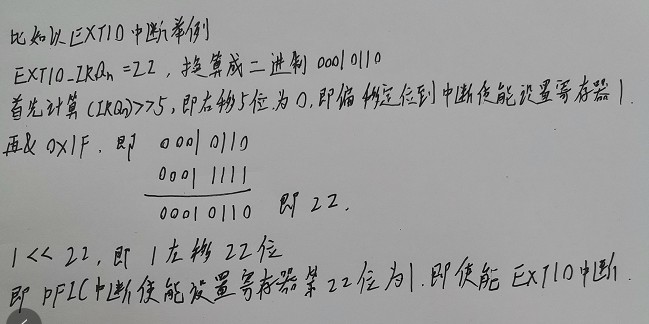 比如以EXTI0中断举例
EXTI0-IRQn =22，换算成二进制 00010110
首先计算(IRQn)>>5，即右移5位为0，即偏移定位到中断使能设置寄存器1.
再& 0x1F. 即 00010110
00011111
00010110 即22.
1<<22，即1左移22位
即PFIC中断使能设置寄存器第22位为1.即使能EXTI0中断.